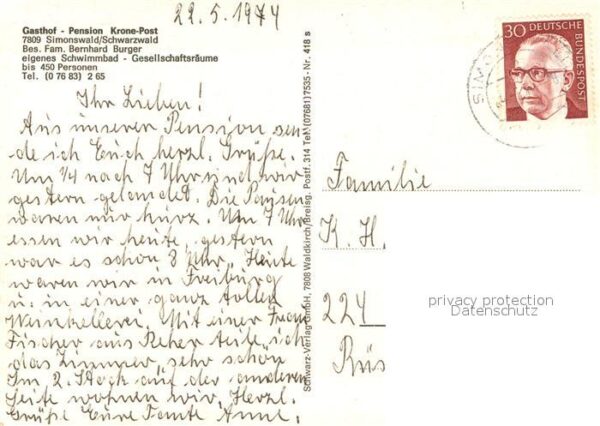 22.5.1974
Gasthof - Pension Krone-Post
7809 Simonswald/Schwarzwald
Bes. Fam. Bernhard Burger
eigenes Schwimmbad - Gesellschaftsräume
bis 450 Personen
Tel. (0 76 83) 2 65
Ihr Lieben!
Aus unserer Pension sen-
de ich Euch herzl. Grüße.
Um 1/4 nach 7 Uhr sind wir
gestern gelandet. Die Pausen
waren nur kurz. Um 7 Uhr
essen wir heute, gestern
war es schon 8 Uhr. Heute
waren wir in Freiburg
u. in einer ganz tollen
Weinkellerei. Mit einer Frau
Fischer aus Reher teile ich
das Zimmer, sehr schön
Im 2. Stock auf der anderen
Seite wohnen wir. Herzl.
Grüße Eure Tante Anne.
Schwarz-Verlag GmbH, 7808 Waldkirch/Breisg. Postf. 314 Tel. (07681) 7535 - Nr. 418 s
30 DEUTSCHE BUNDESPOST
SIMO
Familie
K. H.
224
Rüs
privacy protection
Datenschutz